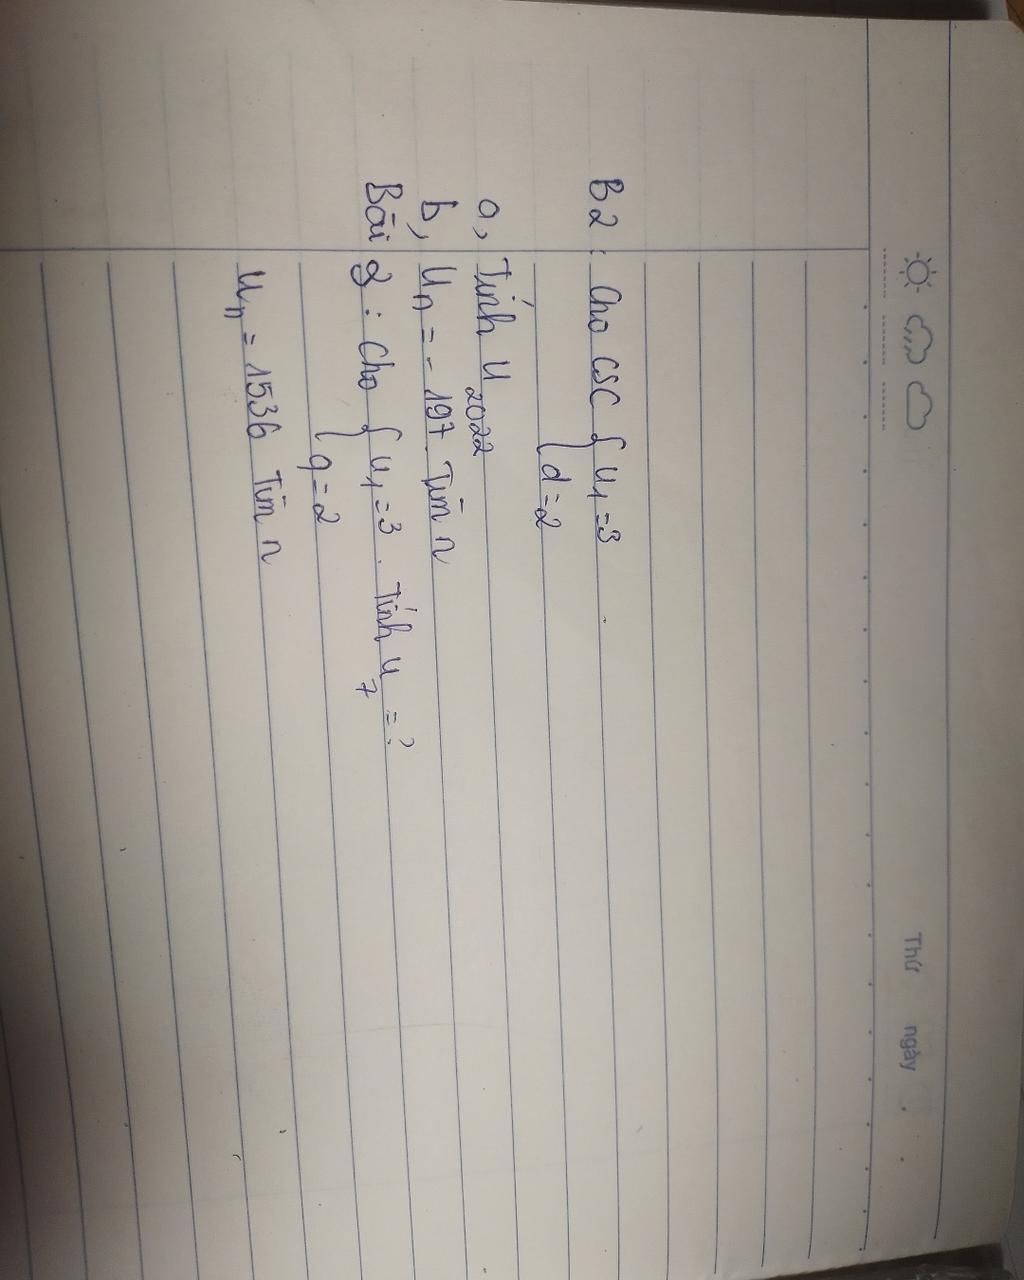 Thứ ngày
B2 : Cho CSC { u1 = 3
d = 2
a, Tính u2022
b, un = - 197. Tìm n
Bài 3 : Cho { u1 = 3 . Tính u7 = ?
q = 2
un = 1536 Tìm n